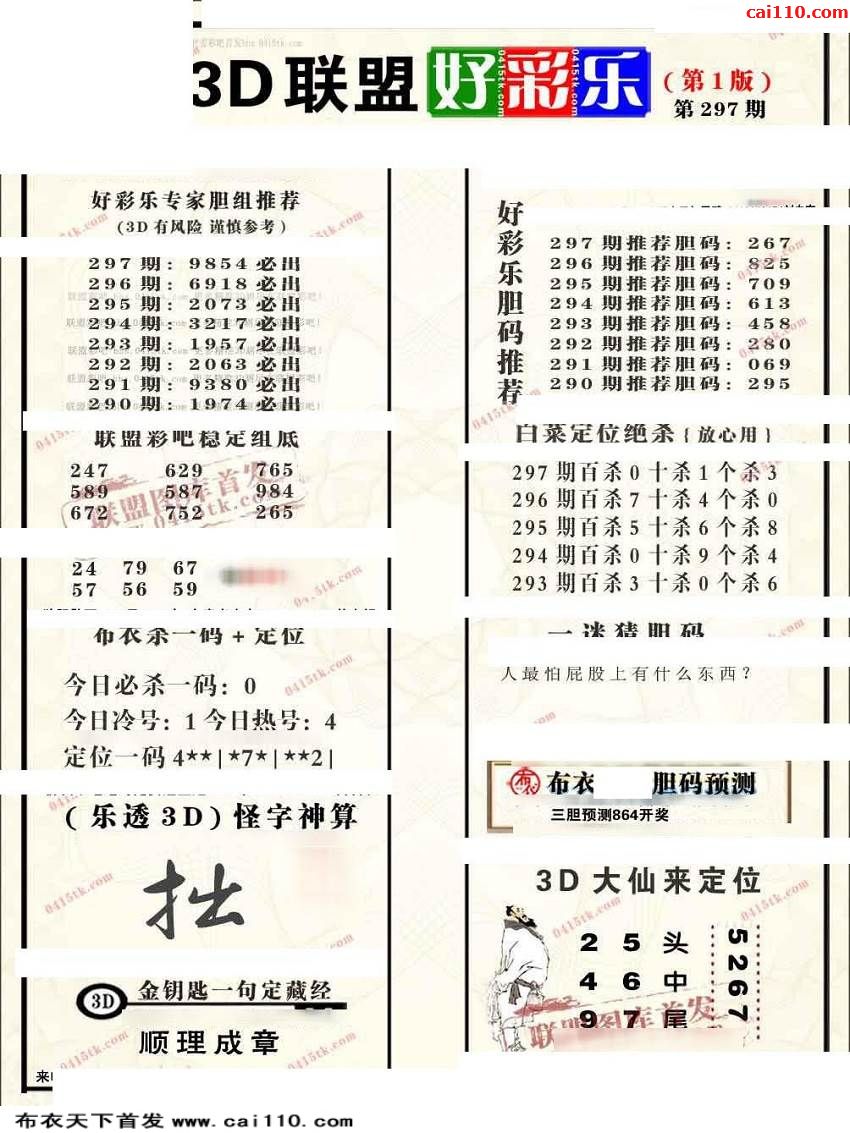 cai110.com
3D联盟好彩乐(第1版)
第297期
好彩乐专家胆组推荐
(3D有风险 谨慎参考)
297期: 9854必出
296期: 6918必出
295期: 2073必出
294期: 3217必出
293期: 1957必出
292期: 2063必出
291期: 9380必出
290期: 1974必出
联盟彩吧稳定组底
247 629 765
589 587 984
672 752 265
24 79 67
57 56 59
布衣杀一码+定位
今日必杀一码: 0
今日冷号: 1 今日热号: 4
定位一码 4**|*7*|**2|
(乐透3D)怪字神算
拙
3D 金钥匙一句定藏经
顺理成章
好彩乐胆码推荐
297期推荐胆码: 267
296期推荐胆码: 825
295期推荐胆码: 709
294期推荐胆码: 613
293期推荐胆码: 458
292期推荐胆码: 280
291期推荐胆码: 069
290期推荐胆码: 295
白菜定位绝杀{放心用}
297期百杀0十杀1个杀3
296期百杀7十杀4个杀0
295期百杀5十杀6个杀8
294期百杀0十杀9个杀4
293期百杀3十杀0个杀6
一迷猜胆码
人最怕屁股上有什么东西?
布衣 胆码预测
三胆预测864开奖
3D大仙来定位
2 5头
4 6中
9 7尾
5267
联盟图库首发
0415tk.com
布衣天下首发 www.cai110.com